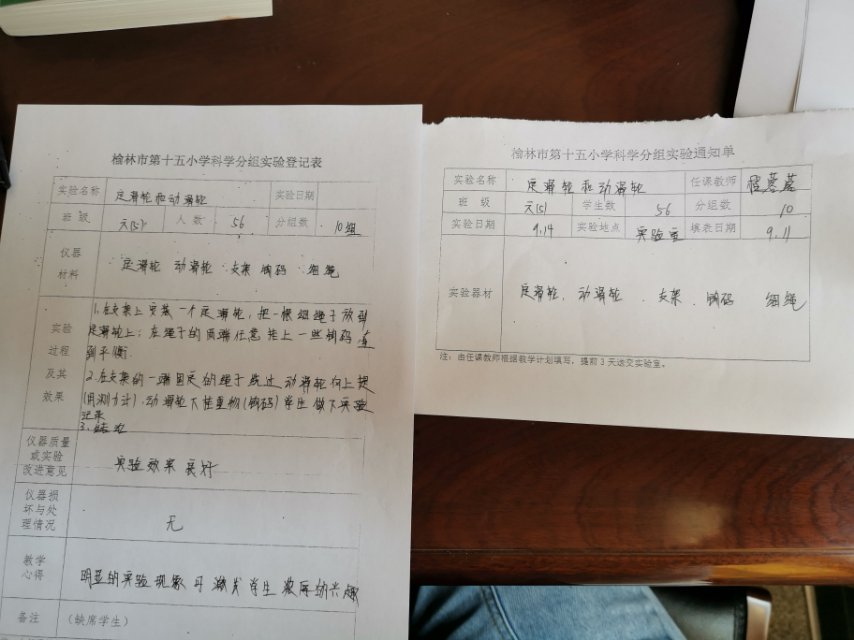 榆林市第十五小学科学分组实验登记表
实验名称 定滑轮和动滑轮 实验日期
班级 六(5) 人数 56 分组数 10组
仪器材料 定滑轮 动滑轮 支架 钩码 细绳
实验过程及其效果
1.在支架上安装一个定滑轮,把一根细绳子放到
定滑轮上;在绳子的两端任意挂上一些钩码 直
到平衡.
2.在支架的一端固定的绳子绕过动滑轮向上提
(用测力计),动滑轮下挂重物(钩码)学生做下实验
记录
3.结论
仪器质量或实验改进意见 实验效果良好
仪器损坏与处理情况 无
教学心得 明显的实验现象可激发学生浓厚的兴趣
备注 (缺席学生)
榆林市第十五小学科学分组实验通知单
实验名称 定滑轮和动滑轮 任课教师
班级 六(5) 学生数 56 分组数 10
实验日期 9.14 实验地点 实验室 填表日期 9.11
实验器材 定滑轮、动滑轮、支架、钩码 细绳
注:由任课教师根据教学计划填写,提前3天送交实验室。